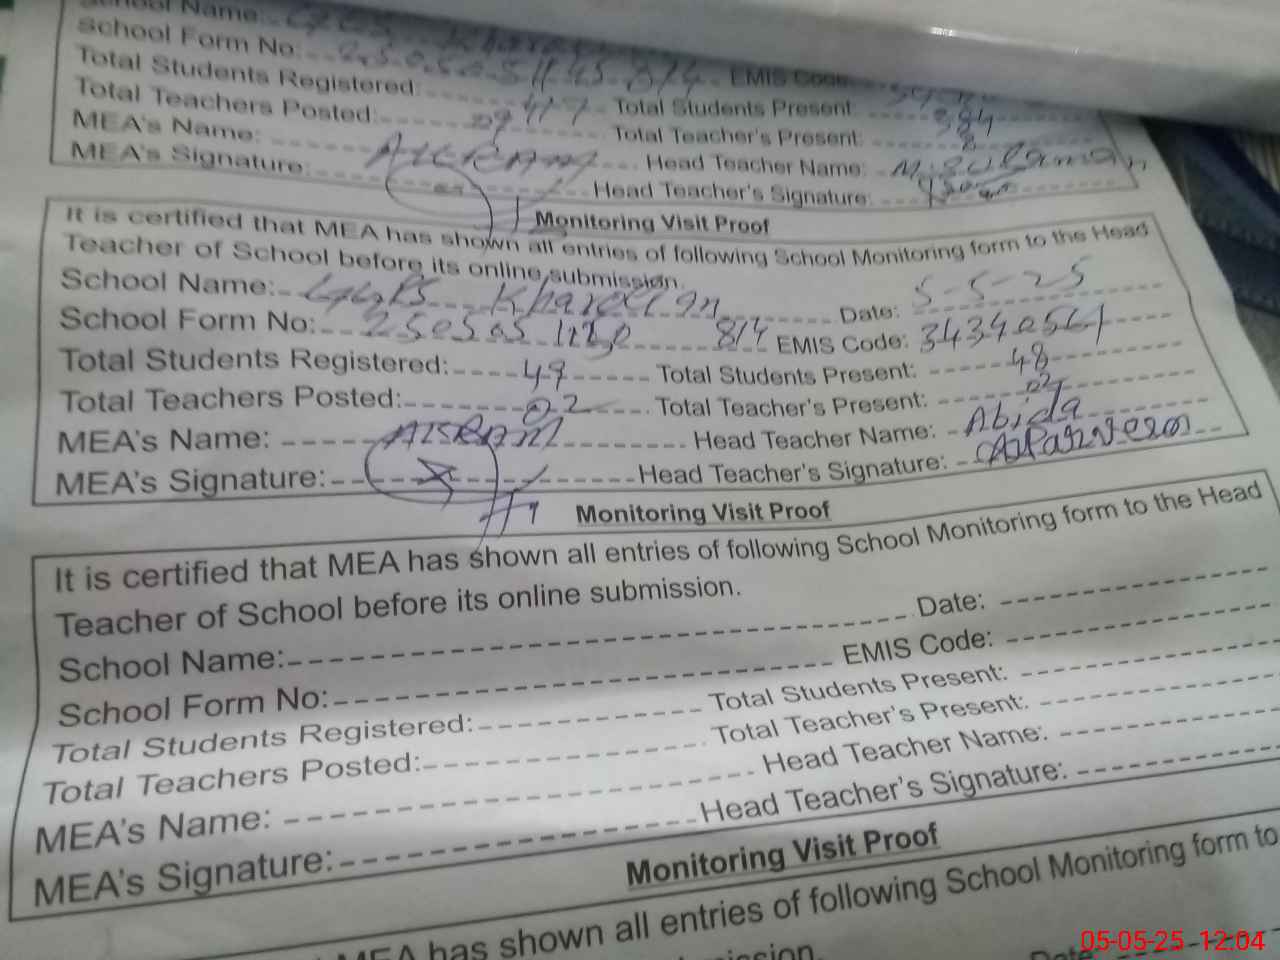 School Name:
School Form No: EMIS Code:
Total Students Registered: 417 Total Students Present: 384
Total Teachers Posted: 09 Total Teacher's Present: 8
MEA's Name: Head Teacher Name:
MEA's Signature: Head Teacher's Signature:
Monitoring Visit Proof
It is certified that MEA has shown all entries of following School Monitoring form to the Head
Teacher of School before its online submission.
School Name: GGPS Date: 5-5-25
School Form No: 814 EMIS Code:
Total Students Registered: 49 Total Students Present: 48
Total Teachers Posted: 02 Total Teacher's Present: 02
MEA's Name: Head Teacher Name: Abida
MEA's Signature: Head Teacher's Signature:
Monitoring Visit Proof
It is certified that MEA has shown all entries of following School Monitoring form to the Head
Teacher of School before its online submission.
School Name: Date:
School Form No: EMIS Code:
Total Students Registered: Total Students Present:
Total Teachers Posted: Total Teacher's Present:
MEA's Name: Head Teacher Name:
MEA's Signature: Head Teacher's Signature:
Monitoring Visit Proof
MEA has shown all entries of following School Monitoring form to
05-05-25 12:04